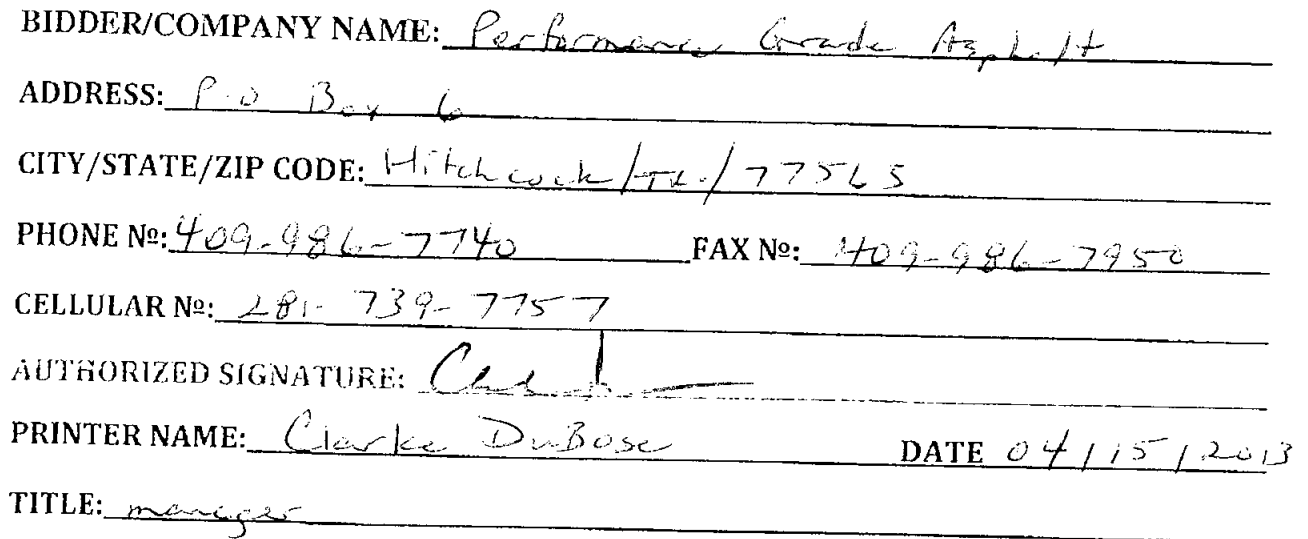 BIDDER/COMPANY NAME: Performance Grade Asphalt
ADDRESS: P.O Box 6
CITY/STATE/ZIP CODE: Hitchcock/TX./77565
PHONE №: 409-986-7740 FAX №: 409-986-7950
CELLULAR №: 281-739-7757
AUTHORIZED SIGNATURE:
PRINTER NAME: Clarke DuBose DATE 04/15/2013
TITLE: manager